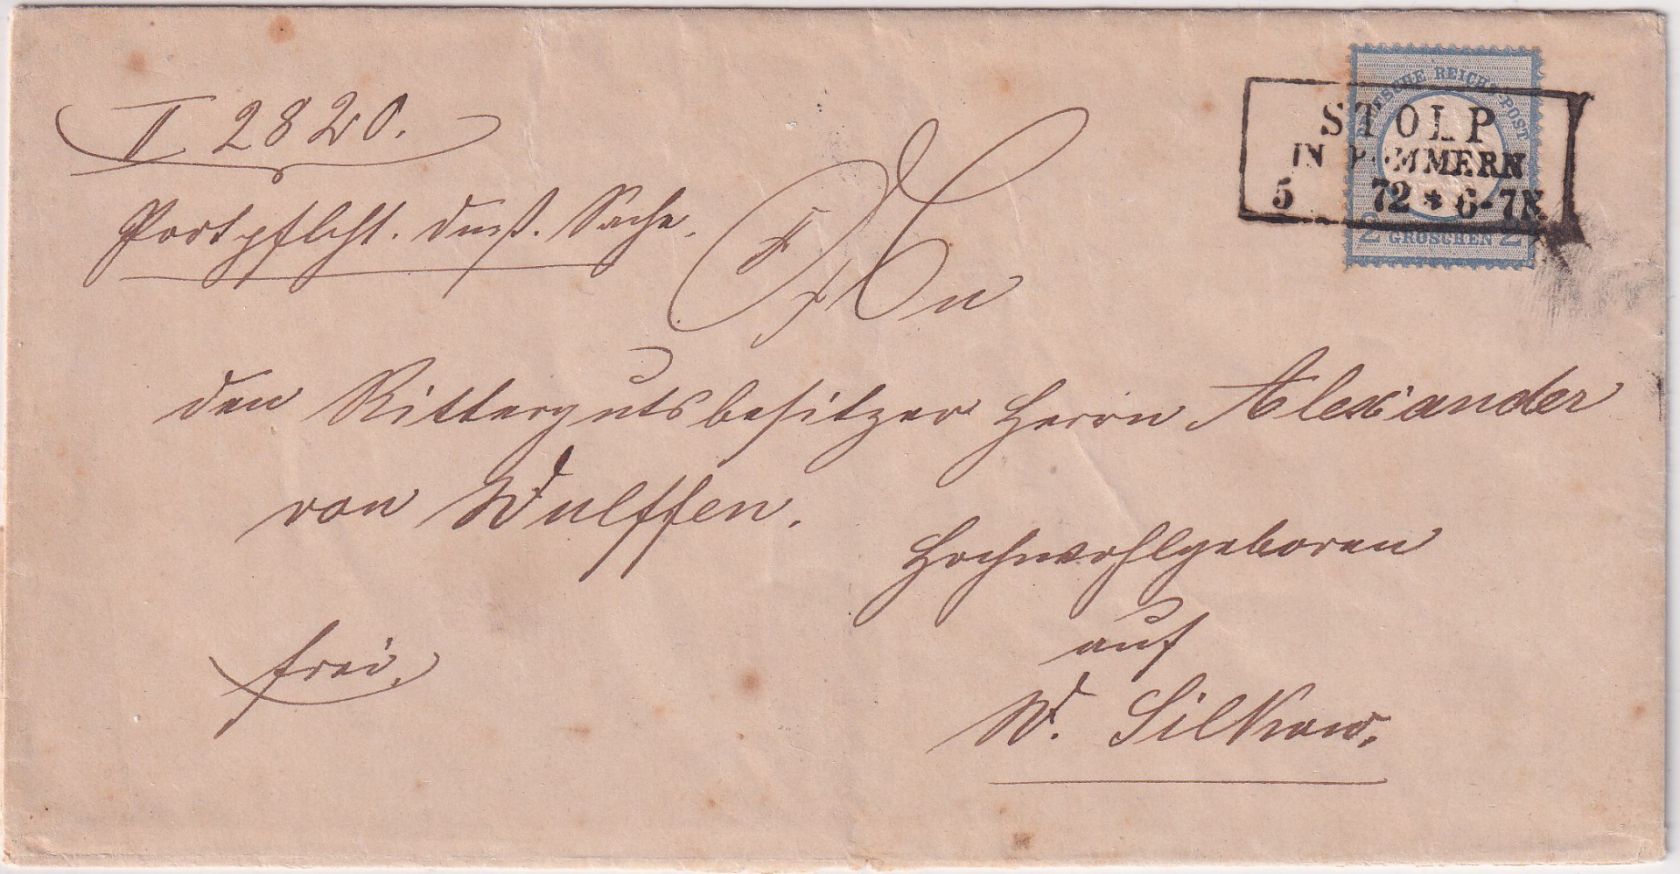 II 2820.
Portpflcht. Dinst. Sache.
An
den Rittergutsbesitzer Herrn Alexander
von Wulffen.
Hochwohlgeboren
auf
frei.
W. Silkow.
DEUTSCHE REICHS-POST
STOLP
IN POMMERN
5 72 * 6-7N
2 GROSCHEN 2